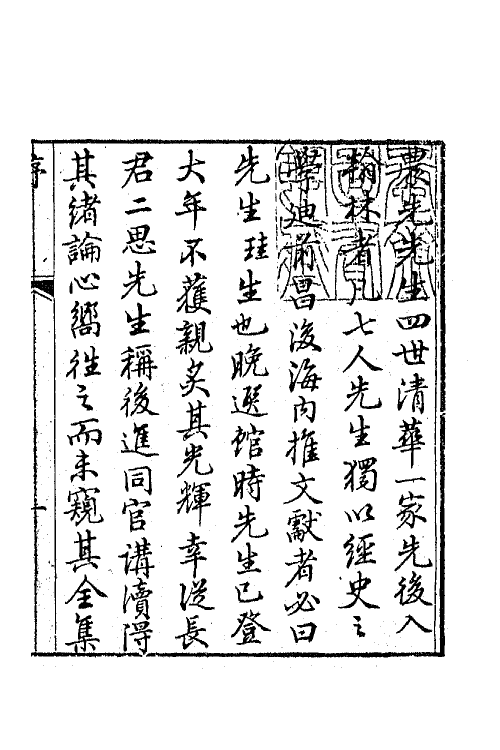 農先先生四世清華一家先後入
翰林者凡七人先生獨以經史之
學迪前昌後海內推文獻者必曰
先生珪生也晚選館時先生已登
大年不獲親炙其光輝幸從長
君二思先生稱後進同官講讀得
其緒論心嚮往之而未窺其全集
序
一